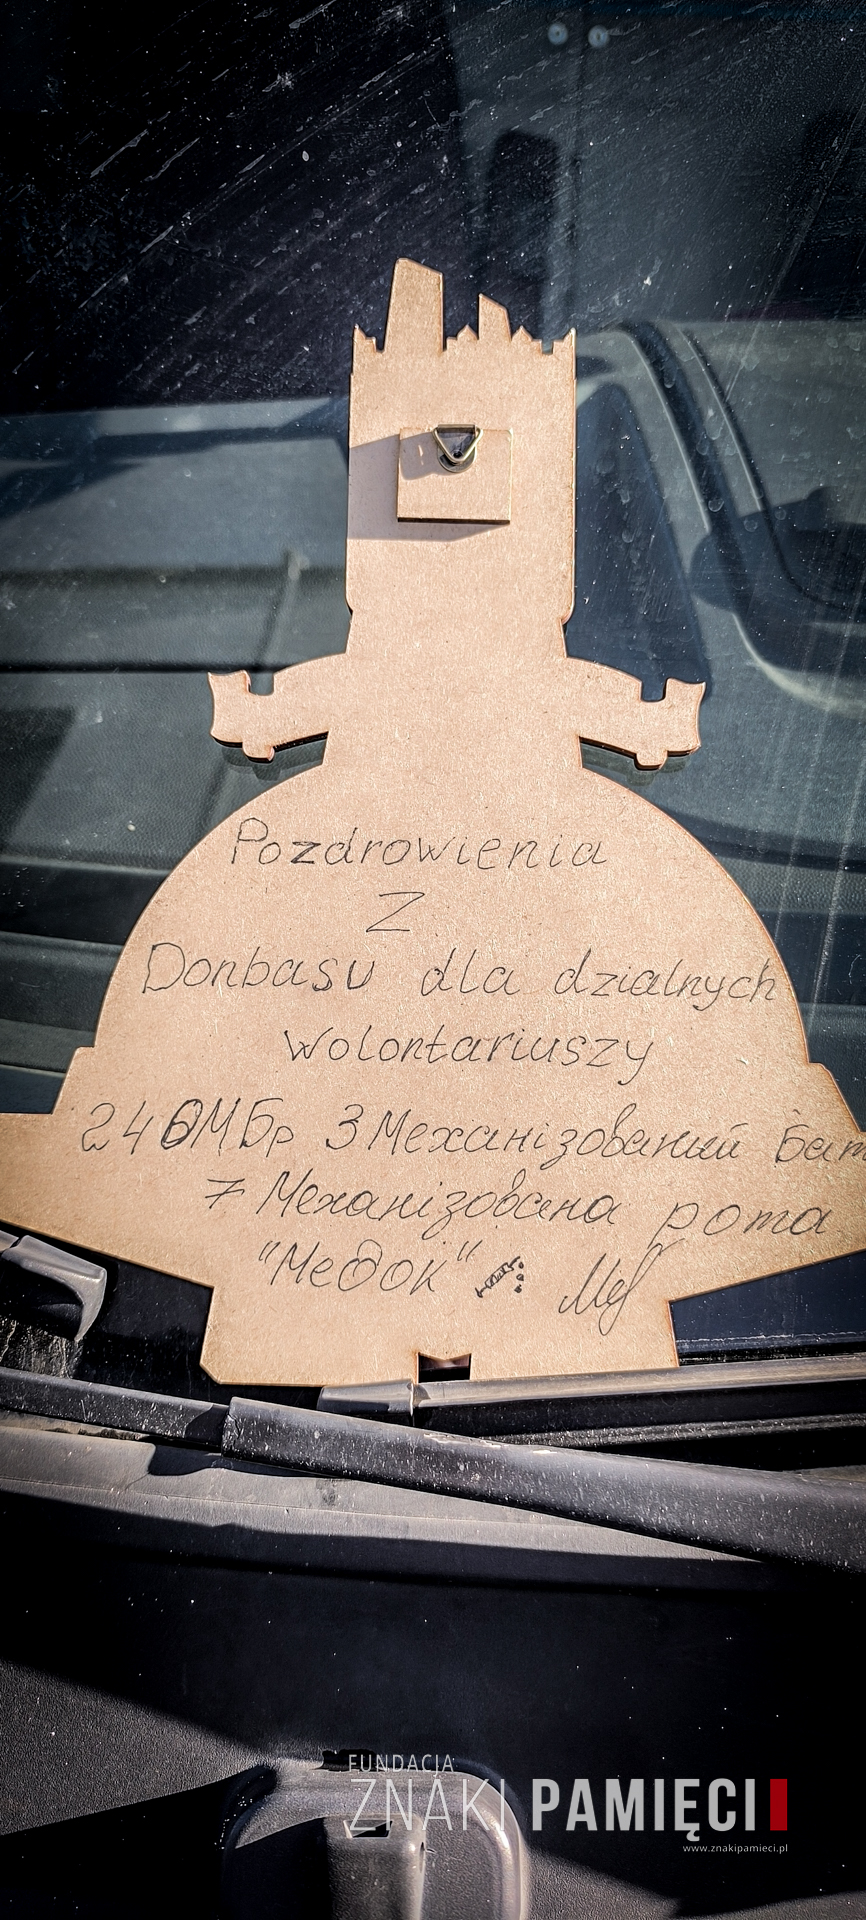 Pozdrowienia
Z
Donbasu dla dzialnych
Wolontariuszy
24 ОМБр 3 Механізований Бат
7 Механізована рота
"Медок"
FUNDACJA
ZNAKI PAMIĘCI
www.znakipamieci.pl